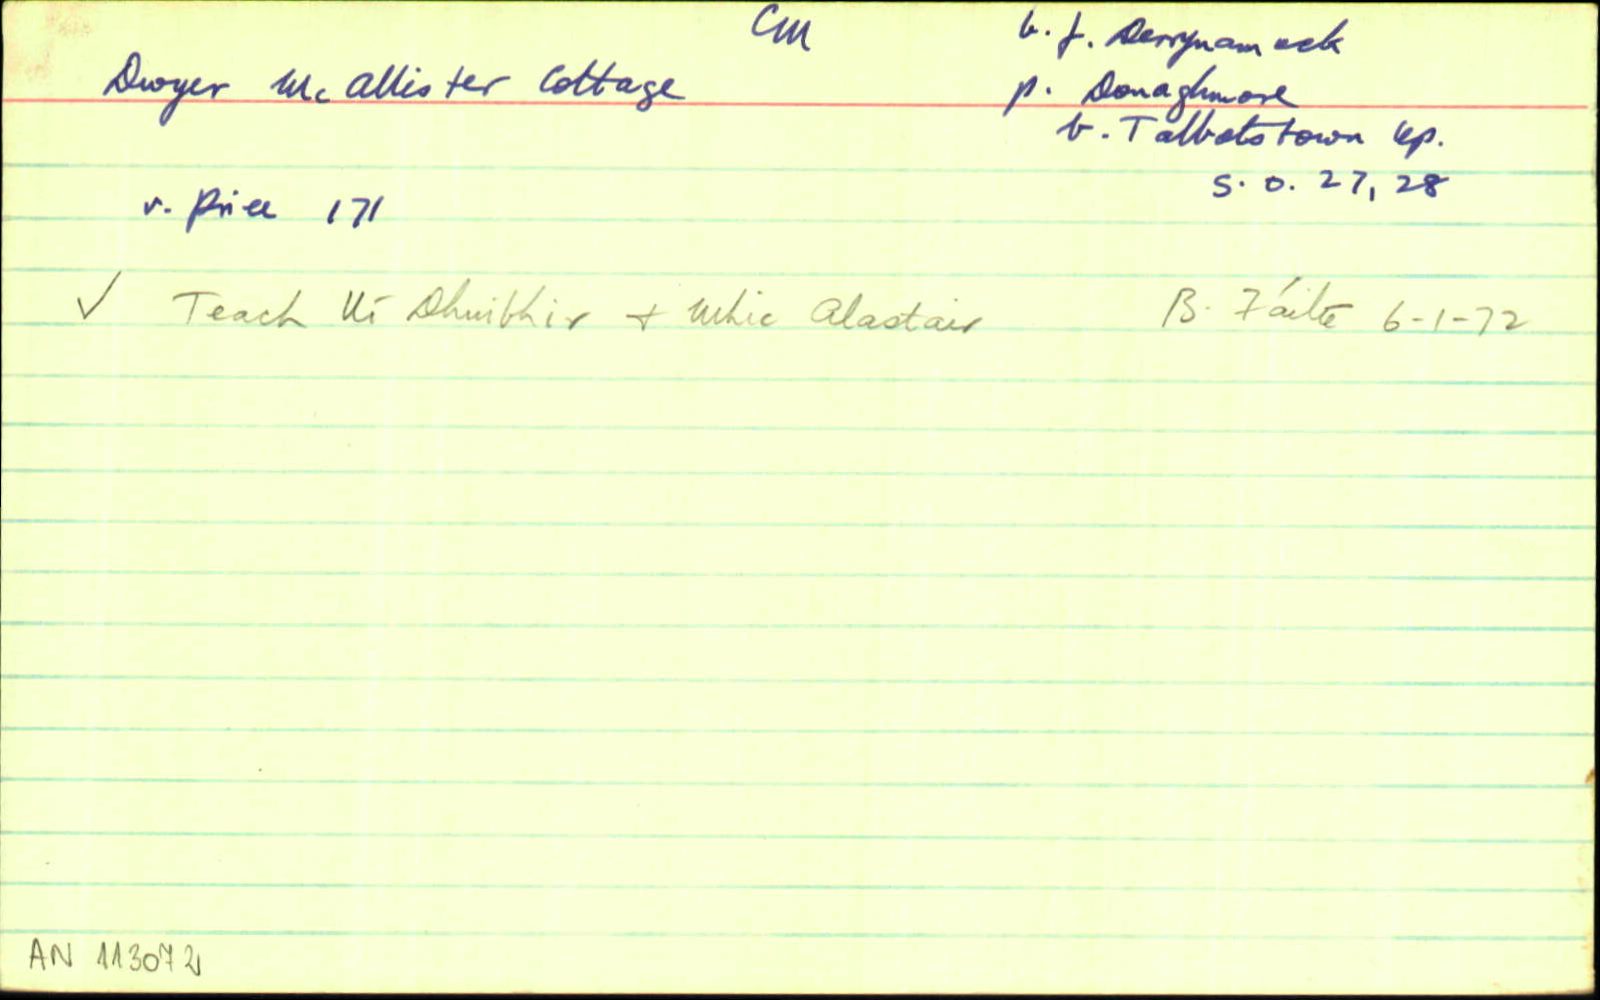 CM
b.f. Derrynamuck
Dwyer McAllister Cottage
p. Donaghmore
b. Talbotstown Up.
S.O. 27, 28
v. Price 171
✓ Teach Uí Dhuibhir + Mhic Alastair B. Fáilte 6-1-72
AN 113072